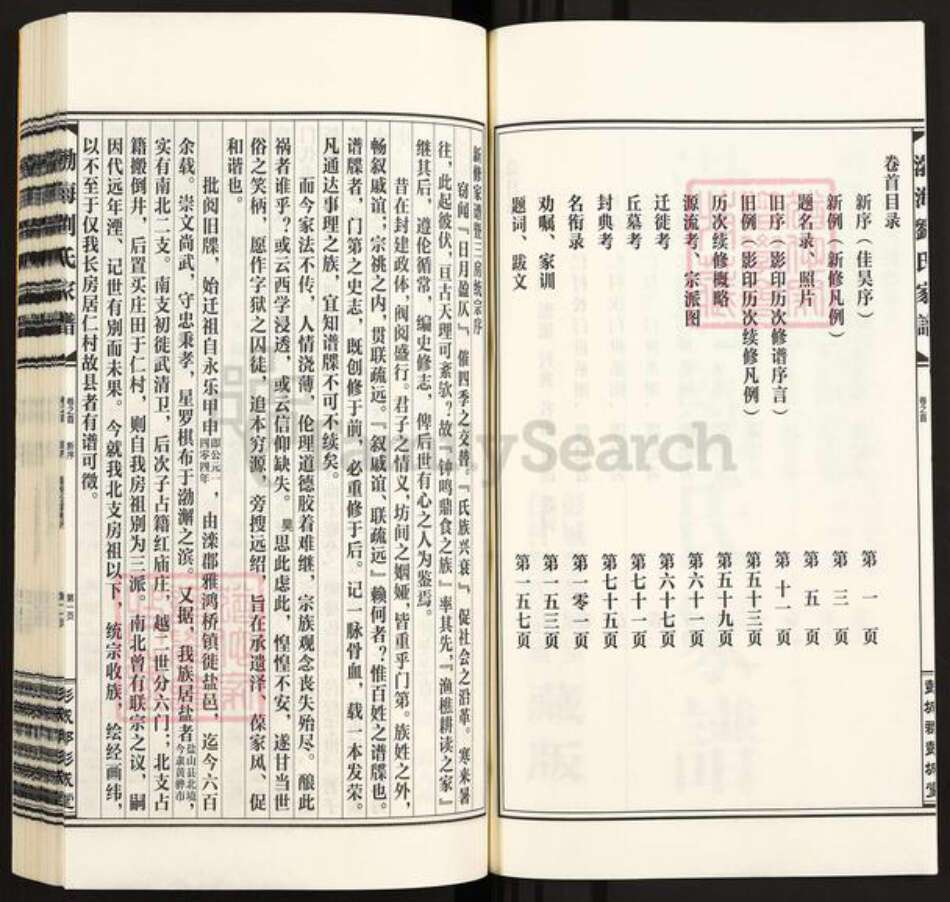 渤海刘氏家谱
卷首目录
新序（佳昊序） 第一页
新例（新修凡例） 第三页
题名录、照片 第五页
旧序（影印历次修谱序言） 第十一页
旧例（影印历次续修凡例） 第五十三页
历次续修概略 第五十九页
源流考、宗派图 第六十一页
迁徙考 第六十七页
丘墓考 第七十一页
封典考 第七十五页
名衔录 第一零一页
劝嘱、家训 第一五三页
题词、跋文 第一五七页
卷之首
新修家谱暨三房统宗序
窃闻『日月盈仄』，催四季之交替。『氏族兴衰』，促社会之沿革。寒来暑
往，此起彼伏，亘古天理可紊欤？故『钟鸣鼎食之族』率其先，『渔樵耕读之家』
继其后，遵伦循常，编史修志，俾后世有心之人为鉴焉。
昔在封建政体，阀阅盛行。君子之情义，坊间之姻娅，皆重乎门第。族姓之外，
畅叙戚谊；宗祧之内，贯联疏远。『叙戚谊、联疏远』赖何者？惟百姓之谱牒也。
谱牒者，门第之史志，既创修于前，必重修于后。记一脉骨血，载一本发荣。
凡通达事理之族，宜知谱牒不可不续矣。
而今家法不传，人情浇薄，伦理道德胶着难继，宗族观念丧失殆尽。酿此
祸者谁乎？或云西学浸透，或云信仰缺失。昊思此虑此，惶惶不安，遂甘当世
俗之笑柄，愿作字狱之囚徒，追本穷源，旁搜远绍，旨在承遗泽、葆家风、促
和谐也。
批阅旧牒，始迁祖自永乐甲申即公元一四零四年，由滦郡雅鸿桥镇徙盐邑，迄今六百
余载。崇文尚武，守忠秉孝，星罗棋布于渤澥之滨。又据，我族居盐者盐山县北境，今隶黄骅市
实有南北二支。南支初徙武清卫，后次子占籍红庙庄，越二世分六门；北支占
籍搬倒井，后置买庄田于仁村，则自我房祖别为三派。南北曾有联宗之议，嗣
因代远年湮、记世有别而未果。今就我北支房祖以下，统宗收族，绘经画纬，
以不至于仅我长房居仁村故县者有谱可徵。
渤海刘氏家谱
卷之首 新序
第一页
彭城郡彭城堂